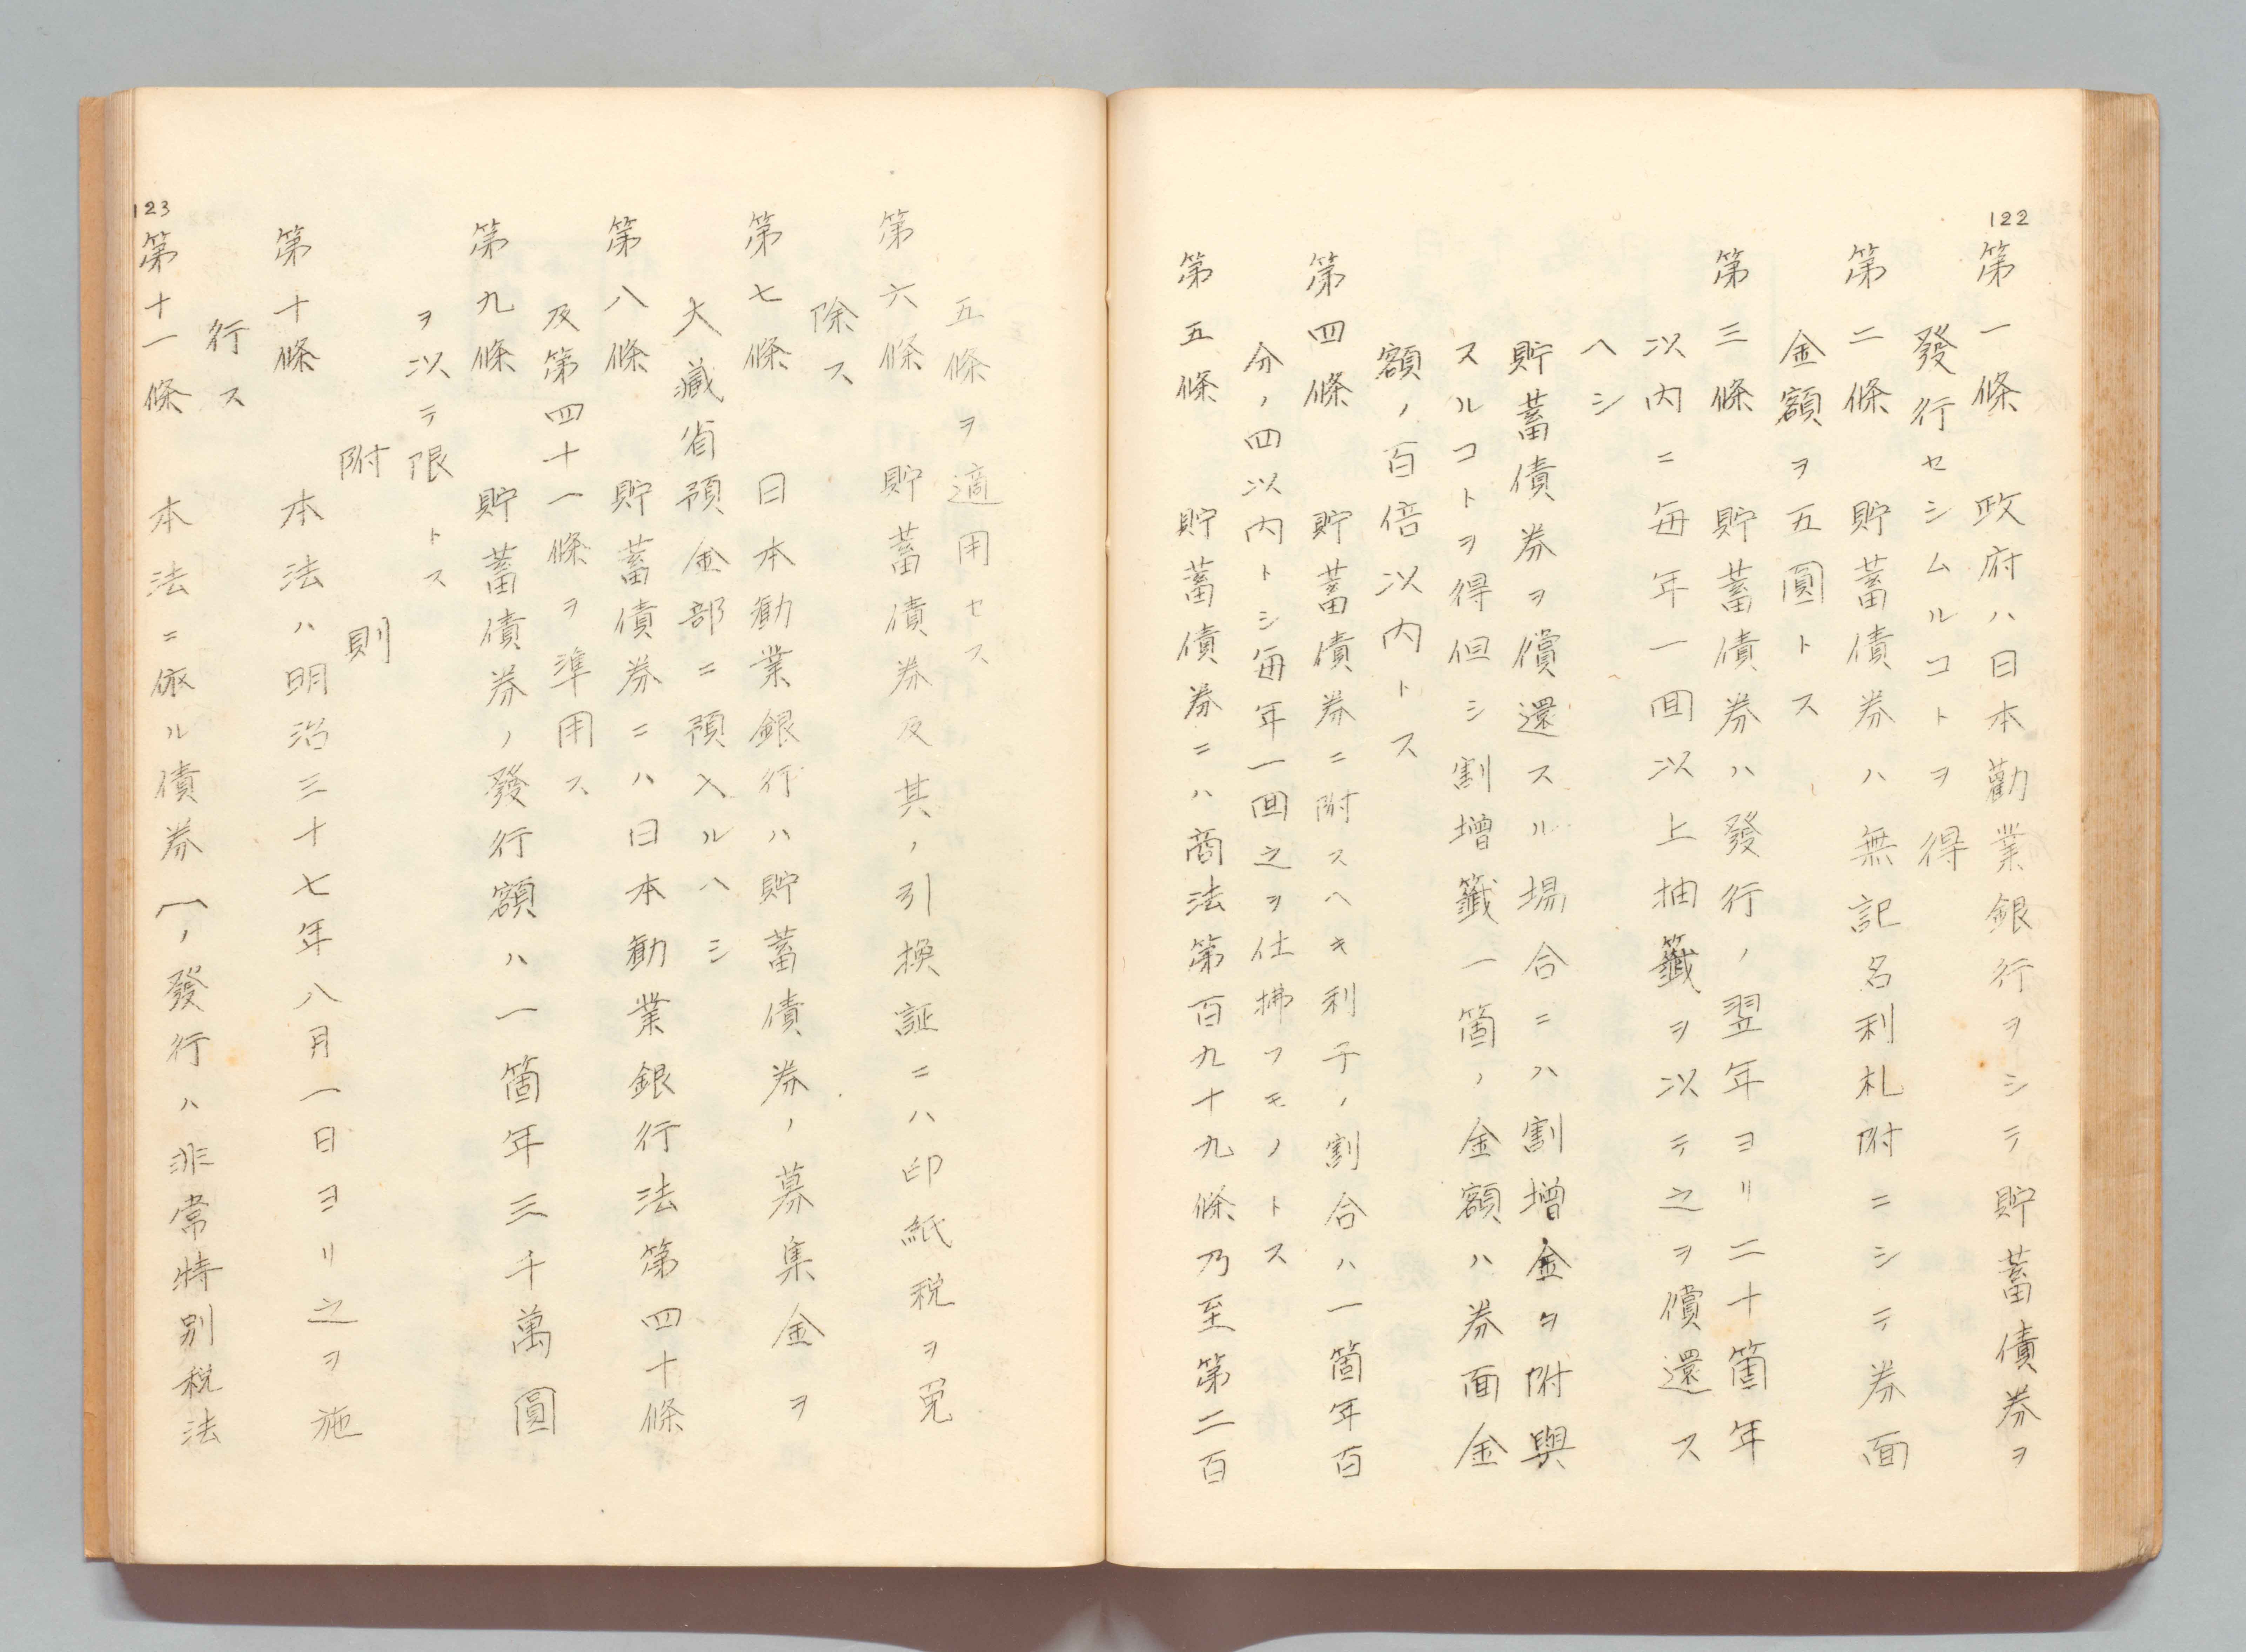 122
第一條　政府ハ日本勸業銀行ヲシテ貯蓄債券ヲ
發行セシムルコトヲ得
第二條　貯蓄債券ハ無記名利札附ニシテ券面
金額ヲ五圓トス
第三條　貯蓄債券ハ發行ノ翌年ヨリ二十箇年
以内ニ毎年一囬以上抽籤ヲ以テ之ヲ償還ス
ヘシ
貯蓄債券ヲ償還スル場合ニハ割増金ヲ附與
スルコトヲ得但シ割増籤一箇ノ金額ハ券面金
額ノ百倍以内トス
第四條　貯蓄債券ニ附スヘキ利子ノ割合ハ一箇年百
分ノ四以内トシ毎年一囬之ヲ仕拂フモノトス
第五條　貯蓄債券ニハ商法第百九十九條乃至第二百
五條ヲ適用セス
第六條　貯蓄債券及其ノ引換証ニハ印紙税ヲ免
除ス
第七條　日本勧業銀行ハ貯蓄債券ノ募集金ヲ
大藏省預金部ニ預入ルヘシ
第八條　貯蓄債券ニハ日本勧業銀行法第四十條
及第四十一條ヲ準用ス
第九條　貯蓄債券ノ發行額ハ一箇年三千萬圓
ヲ以テ限トス
附則
第十條　本法ハ明治三十七年八月一日ヨリ之ヲ施
行ス
123
第十一條　本法ニ依ル債券ノ發行ハ非常特別税法